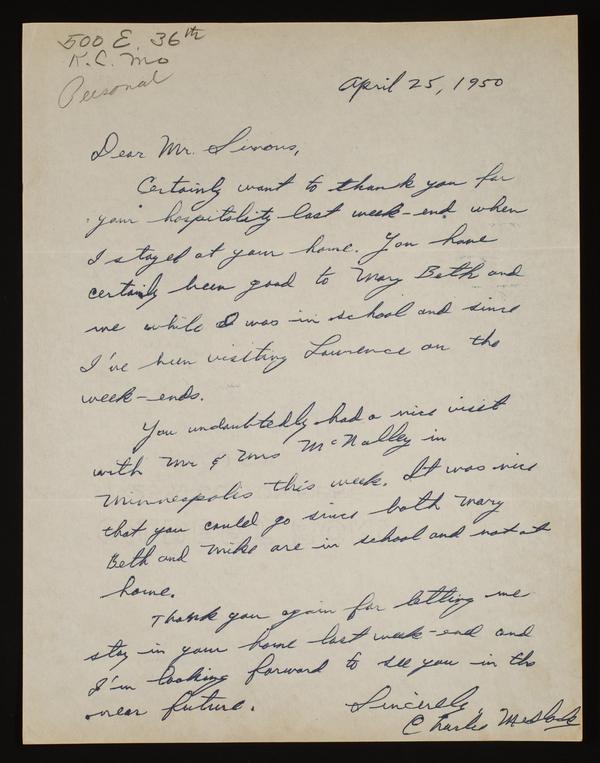 500 E. 36th
K.C. Mo
Personal
April 25, 1950
Dear Mr. Simons,
Certainly want to thank you for
your hospitality last week-end when
I stayed at your home. You have
certainly been good to Mary Beth and
me while I was in school and since
I've been visiting Lawrence on the
week-ends.
You undoubtedly had a nice visit
with Mr & Mrs McNalley in
Minneapolis this week. It was nice
that you could go since both Mary
Beth and Mike are in school and not at
home.
Thank you again for letting me
stay in your home last week-end and
I'm looking forward to see you in the
near future.
Sincerely,
Charles Medlock